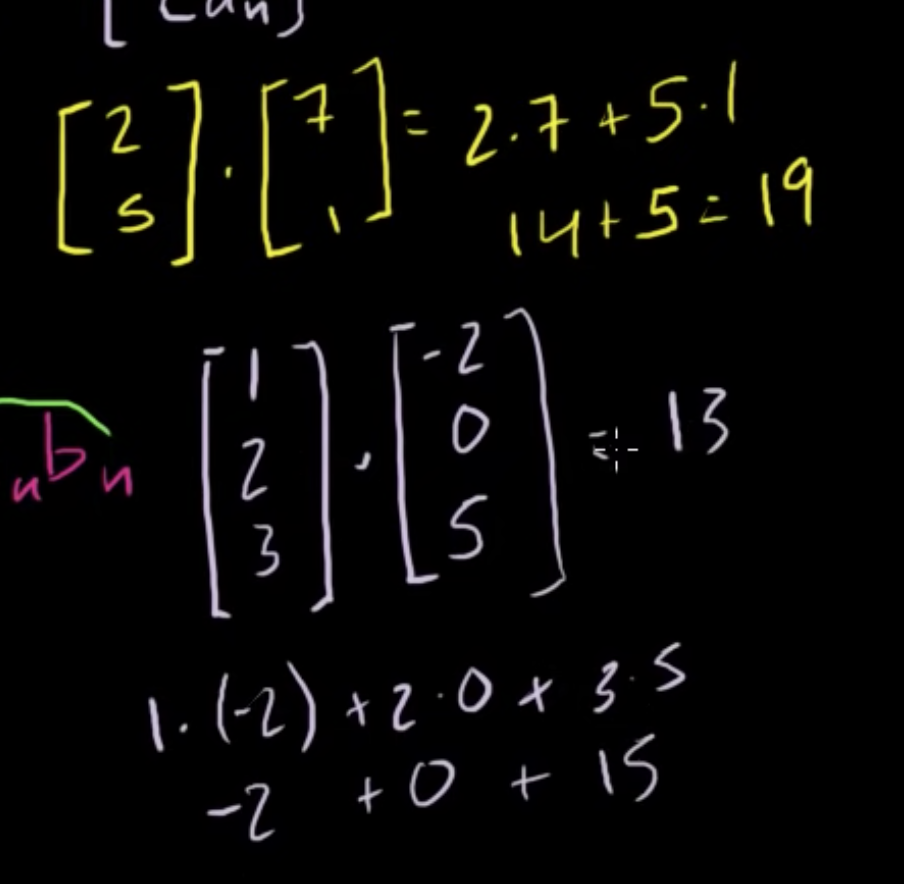 [2 5] · [7 1] = 2·7 + 5·1
14 + 5 = 19
[1 2 3] · [-2 0 5] = 13
n b n
1·(-2) + 2·0 + 3·5
-2 + 0 + 15